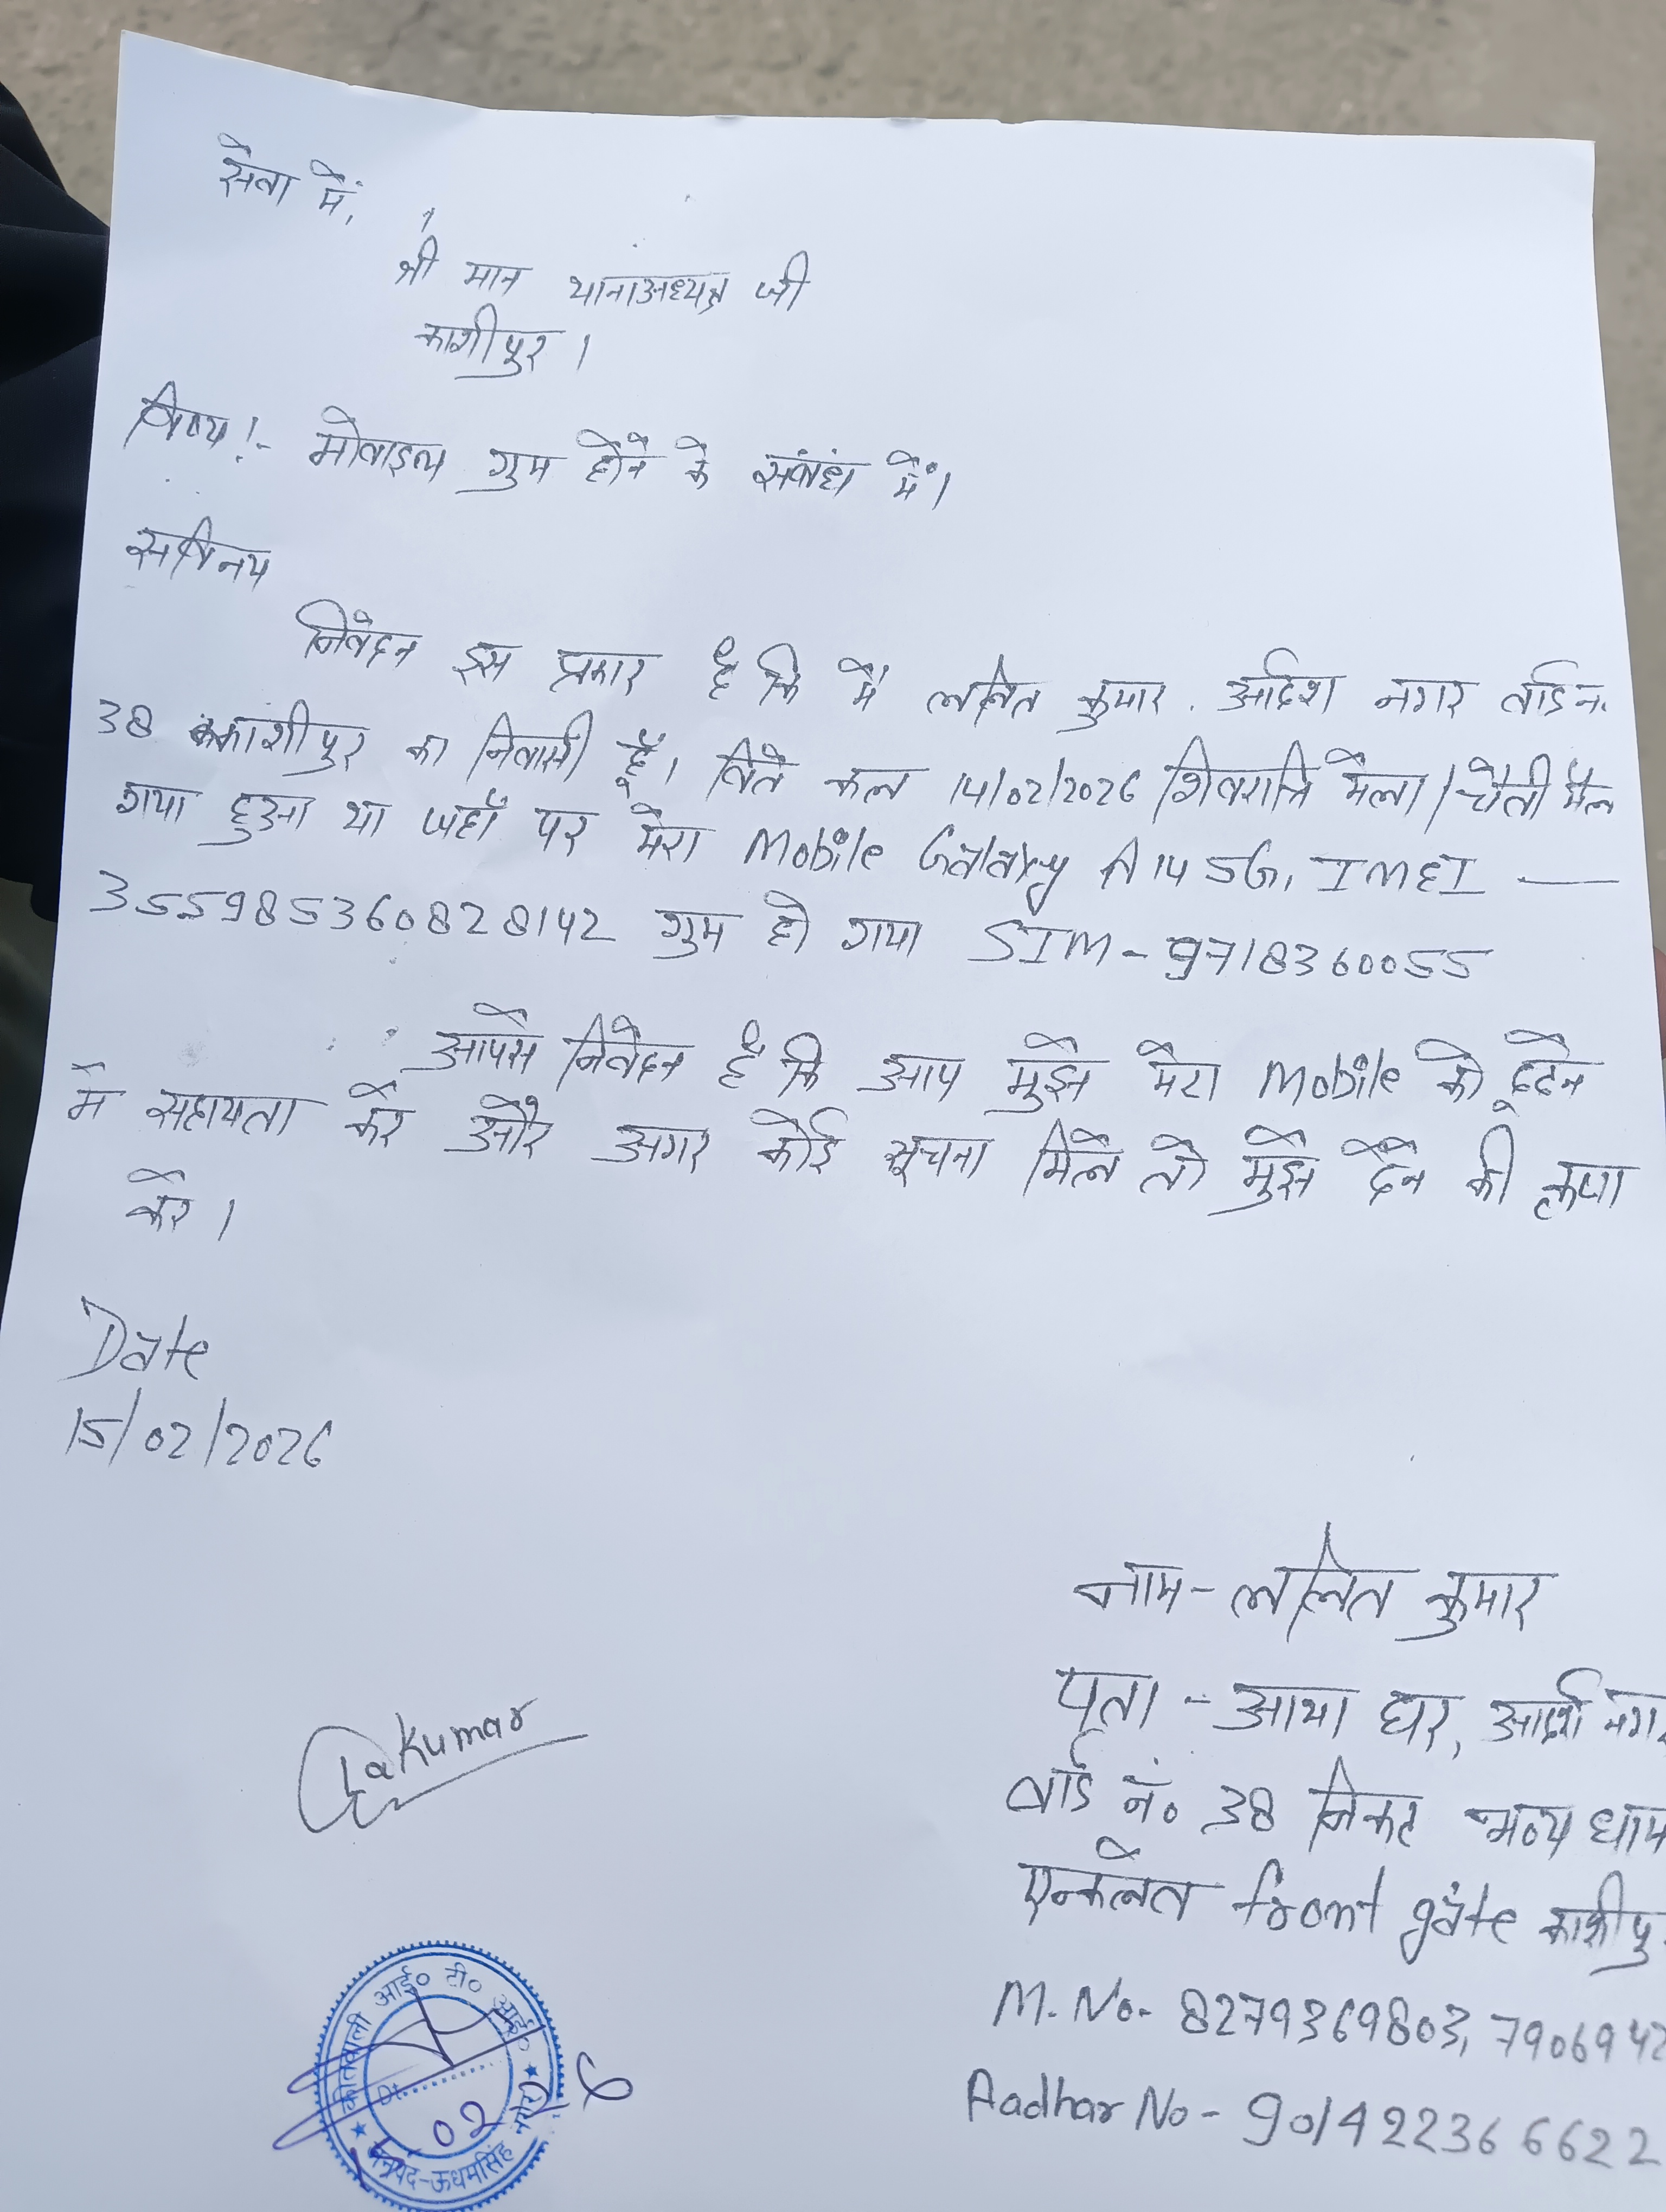 सेवा में,
श्री मान थानाअध्यक्ष जी
काशीपुर।
विषय:- मोबाइल गुम होने के संबंध में।
सविनय
निवेदन इस प्रकार है कि मैं ललित कुमार. आर्दश नगर वार्ड न.
38 काशीपुर का निवासी हूँ। बिते कल 14/02/2026 शिवरात्रि मेला/चैती मेल
गया हुआ था जहाँ पर मेरा Mobile Galaxy A14 5G, IMEI —
355985360828142 गुम हो गया SIM-9718360055
आपसे निवेदन है कि आप मुझे मेरा Mobile को ढूंढने
में सहायता करें और अगर कोई सूचना मिले तो मुझे देने की कृपा
करें।
Date
15/02/2026
नाम-ललित कुमार
पता - आया घर, आर्दश नगर
वार्ड नं० 38 निकट भव्य धाम
एन्कलेव front gate काशीपुर
M.No.- 8279369803, 7906942
Aadhar No - 901422366622
La Kumar
कोतवाली आई० टी० आई०
Dt.........
15 02 26
जनपद-ऊधमसिंह नगर